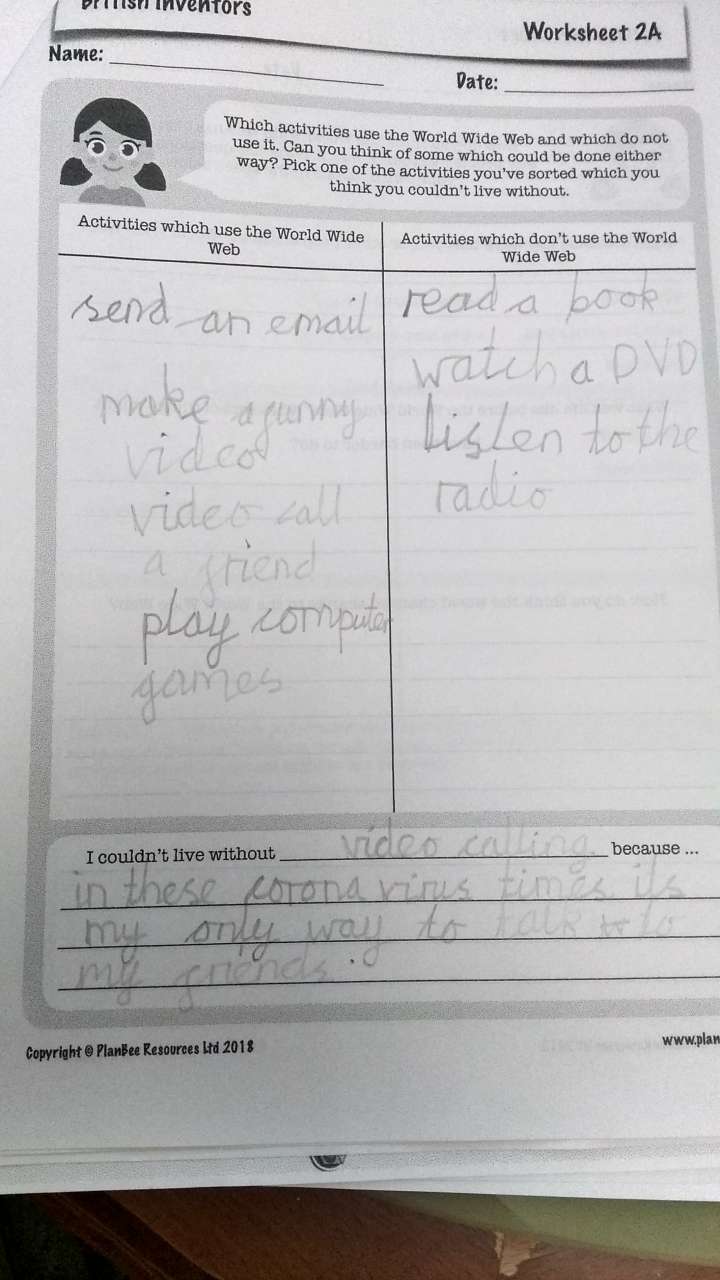 British Inventors
Worksheet 2A
Name:
Date:
Which activities use the World Wide Web and which do not
use it. Can you think of some which could be done either
way? Pick one of the activities you've sorted which you
think you couldn't live without.
Activities which use the World Wide
Web
Activities which don't use the World
Wide Web
send an email
make a funny
video
video call
a friend
play computer
games
read a book
watch a DVD
listen to the
radio
I couldn't live without video calling because ...
in these corona virus times its
my only way to talk to
my friends.
Copyright © PlanBee Resources Ltd 2018
www.plan